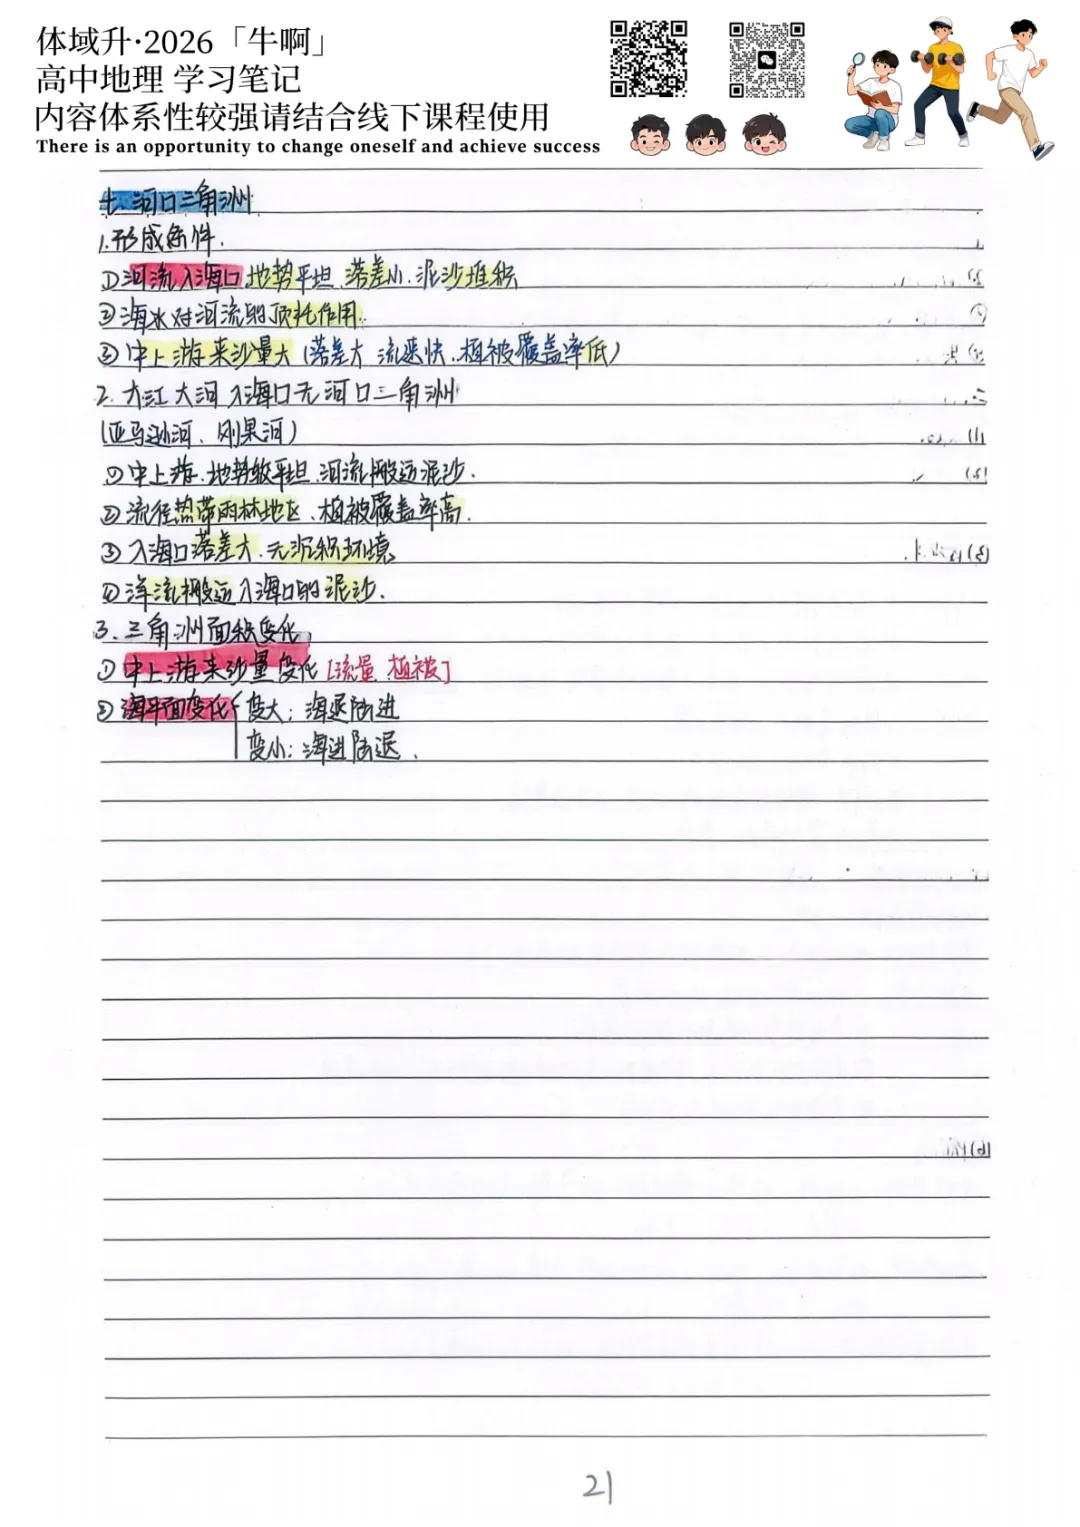 体域升·2026「牛啊」
高中地理 学习笔记
内容体系性较强请结合线下课程使用
There is an opportunity to change oneself and achieve success
七.河口三角洲
1.形成条件.
①河流入海口地势平坦.落差小.泥沙堆积
②海水对河流的顶托作用.
③中上游来沙量大(落差大 流速快.植被覆盖率低)
2.大江大河入海口无河口三角洲
(亚马逊河、刚果河)
①中上游.地势较平坦.河流搬运泥沙.
②流径热带雨林地区.植被覆盖率高.
③入海口落差大.无沉积环境
④洋流搬运入海口的泥沙.
3.三角洲面积变化
①中上游来沙量变化[流量 植被]
②海平面变化{变大:海退陆进
变小:海进陆退.
21